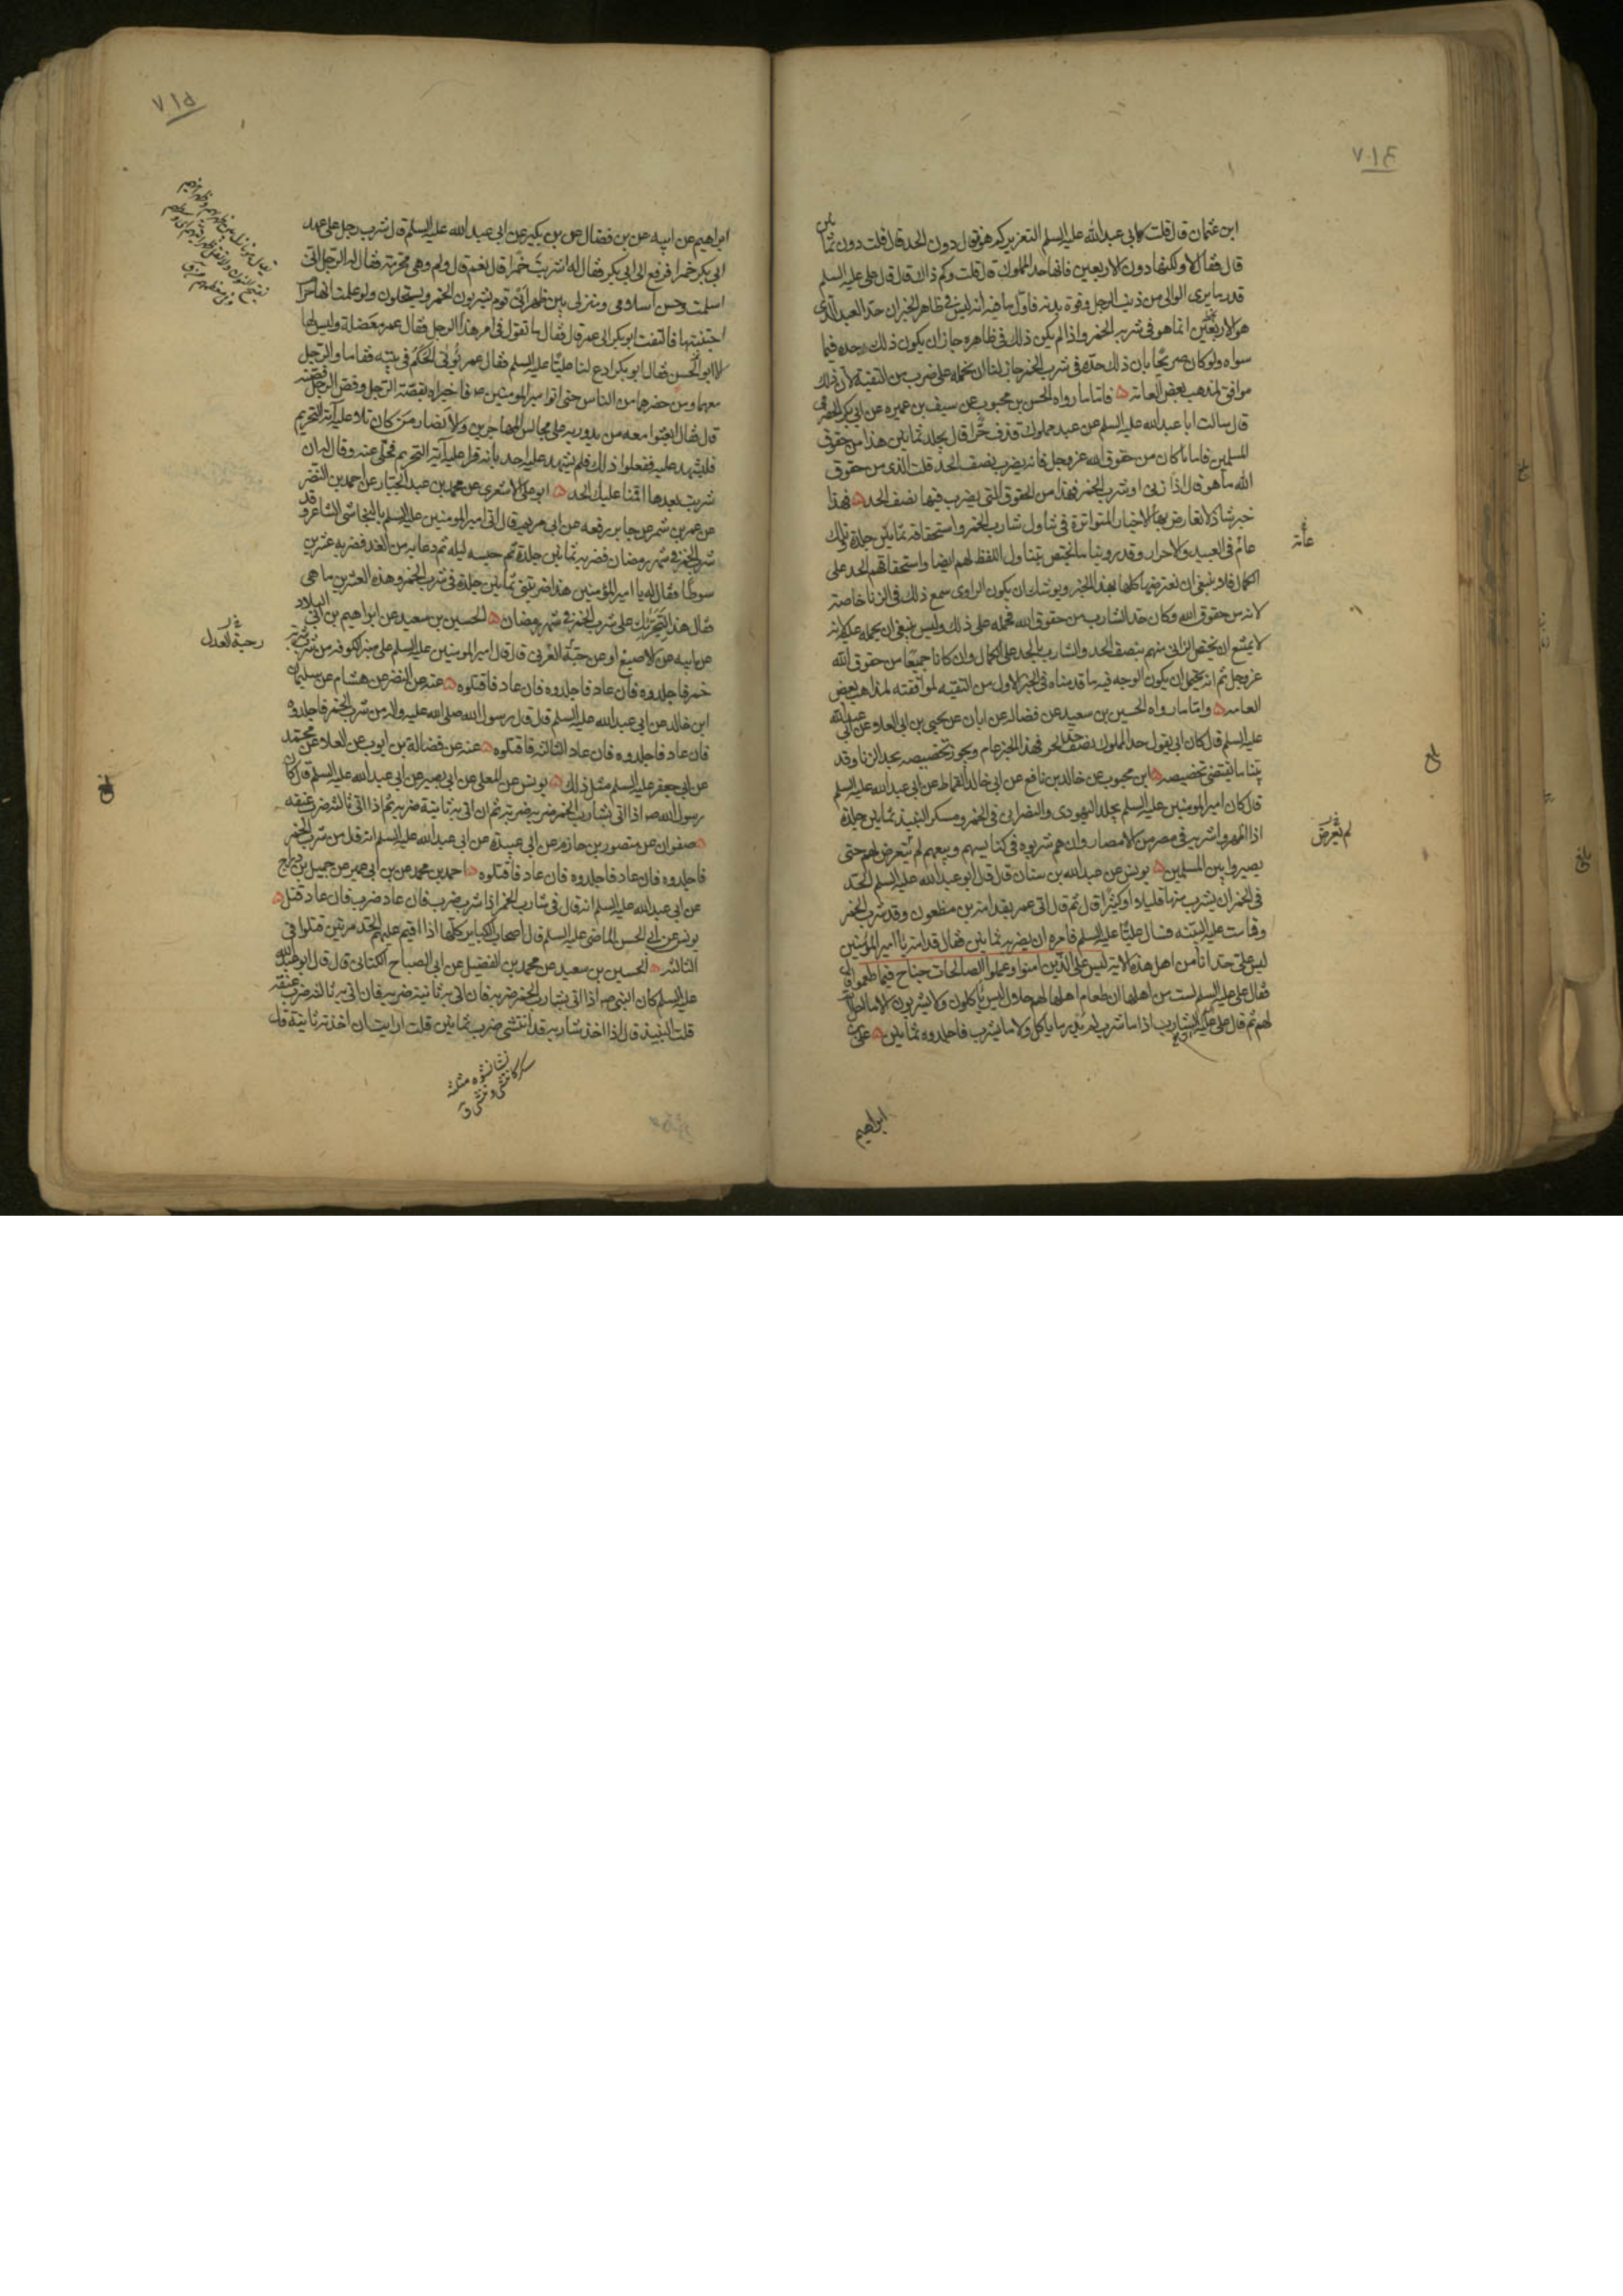 ابن عثمان قال قلت لابي عبدالله عليه السلم التعزير كم هو قال دون الحد قال قلت دون ثمانين
قال فقال لا ولكنها دون الاربعين فانها حد المملوك قال قلت وكم ذاك قال قال علي عليه السلم
قدر ما يرى الوالي من ذنب الرجل وقوة بدنه فاول ما فيه انه ليس في ظاهر الخبر ان حد العبد الذي
هو الاربعين انما هو في شرب الخمر واذا لم يكن ذلك في ظاهره جاز ان يكون ذلك حده فيما
سواه ولو كان صريحا بان ذلك حده في شرب الخمر جاز لنا ان نحمله على ضرب من التقية لان ذلك
موافق لمذهب بعض العامة فاما ما رواه الحسن بن محبوب عن سيف بن عميره عن ابي بكر الحضرمي
قال سالت ابا عبدالله عليه السلم عن عبد مملوك قذف حرا قال يجلد ثمانين هذا من حقوق
المسلمين فاما ما كان من حقوق الله عز وجل فانه يضرب نصف الحد قلت الذي من حقوق
الله ما هو قال اذا زنى او شرب الخمر فهذا من الحقوق التي يضرب فيها نصف الحد فهذا
خبر شاذ لا تعارض بها الاخبار المتواترة في تناول شارب الخمر واستحقاقه ثمانين جلدة وتلك
عام في العبيد والاحرار وقد روينا ما يختص بتناول اللفظ لهم ايضا واستحقاقهم الحد على
الكمال فلا ينبغي ان نعترضها كلها بهذا الخبر ويوشك ان يكون الراوي سمع ذلك في الزنا خاصة
لانه من حقوق الله وكان حد الشارب من حقوق الله فحمله على ذلك وليس ينبغي ان يحمله عليه لانه
لا يمتنع ان يختص الزاني منهم بنصف الحد والشارب بالحد على الكمال وان كانا جميعا من حقوق الله
عز وجل ثم انه يحتمل ان يكون الوجه فيه ما قدمناه في الخبر الاول من التقية لموافقته لمذاهب بعض
العامه واما ما رواه الحسين بن سعيد عن فضالة عن ابان عن يحيى بن ابي العلاء عن ابي عبدالله
عليه السلم قال كان ابي يقول حد المملوك نصف حد الحر فهذا الخبر عام ويجوز تخصيصه بحد الزنا وقد
بينا ما يقتضي تخصيصه ابن محبوب عن خالد بن نافع عن ابي خالد القماط عن ابي عبدالله عليه السلم
قال كان امير المومنين عليه السلم يجلد اليهودي والنصراني في الخمر ومسكر النبيذ ثمانين جلدة
اذا اظهروا شربه في مصر من الامصار وان هم شربوه في كنايسهم وبيعهم لم يتعرض لهم حتى
يصيروا بين المسلمين يونس عن عبدالله بن سنان قال قال ابو عبدالله عليه السلم الحد
في الخمر ان يشرب منها قليلا او كثيرا قال ثم قال اتي عمر بقدامة بن مظعون وقد شرب الخمر
وقامت عليه البينه فسال عليا عليه السلم فامره ان يضربه ثمانين فقال قدامة يا امير المؤمنين
ليس علي حد انا من اهل هذه الاية ليس على الذين امنوا وعملوا الصالحات جناح فيما طعموا قال
فقال علي عليه السلم لست من اهلها ان طعام اهلها لهم حلال ليس ياكلون ولا يشربون الا ما احل الله
لهم ثم قال علي عليه السلم الشارب اذا ما شرب لم يدر ما ياكل ولا ما يشرب فاجلدوه ثمانين علي بن
ابراهيم
عامة
لم يعرض
بلغ
٧١٤
٧١٥
ابراهيم عن ابيه عن بن فضال عن بن بكير عن ابي عبدالله عليه السلم قال شرب رجل على عهد
ابي بكر خمرا فرفع الى ابي بكر فقال له اشربت خمرا قال نعم قال ولم وهي محرمة فقال له الرجل انني
اسلمت وحسن اسلامي ومنزلي بين ظهراني قوم يشربون الخمر ويستحلون ولو علمت انها حرام
اجتنبتها فالتفت ابو بكر الى عمر قال فقال ما تقول في امر هذا الرجل فقال عمر معضلة وليس لها
الا ابو الحسن فقال ابو بكر ادع لنا عليا عليه السلم فقال عمر يؤتى الحكم في بيته فقاما والرجل
معهما ومن حضرهما من الناس حتى اتوا امير المومنين ص فاخبراه بقصة الرجل وقص الرجل قصته
قال فقال ابعثوا معه من يدور به على مجالس المهاجرين والانصار من كان تلا عليه آية التحريم
فليشهد عليه ففعلوا ذلك فلم يشهد عليه احد بانه قرا عليه آية التحريم فخلى عنه وقال له ان
شربت بعدها اقمنا عليك الحد ابو علي الاشعري عن محمد بن عبد الجبار عن احمد بن النضر
عن عمرو بن شمر عن جابر رفعه عن ابي مريم قال اتي امير المومنين عليه السلم بالنجاشي الشاعر وقد
شرب الخمر في شهر رمضان فضربه ثمانين جلدة ثم حبسه ليله ثم دعا به من الغد فضربه عشرين
سوطا فقال له يا امير المؤمنين هذا ضربتني ثمانين جلدة في شرب الخمر وهذه العشرين ما هي
فقال هذا لتجرئك على شرب الخمر في شهر رمضان الحسين بن سعيد عن ابراهيم بن ابي البلاد
عن ابيه عن الاصبغ او عن حبة العرني قال قال امير المومنين عليه السلم على منبر الكوفه من شرب شربة
خمر فاجلدوه فان عاد فاجلدوه فان عاد فاقتلوه عنه عن النضر عن هشام عن سليمان
ابن خالد عن ابي عبدالله عليه السلم قال قال رسول الله صلى الله عليه واله من شرب الخمر فاجلدوه
فان عاد فاجلدوه فان عاد الثالثة فاقتلوه عنه عن فضالة بن ايوب عن العلا عن محمد
عن ابي جعفر عليه السلم مثل ذلك يونس عن المعلى عن ابي بصير عن ابي عبدالله عليه السلم قال كان
رسول الله ص اذا اتي بشارب الخمر ضربه ثم ان اتي به ثانية ضربه ثم اذا اتي ثالثة ضرب عنقه
صفوان عن منصور بن حازم عن ابي عبيدة عن ابي عبدالله عليه السلم انه قال من شرب الخمر
فاجلدوه فان عاد فاجلدوه فان عاد فاقتلوه احمد بن محمد عن بن ابي عمير عن جميل بن دراج
عن ابي عبدالله عليه السلم انه قال في شارب الخمر اذا شرب ضرب فان عاد ضرب فان عاد قتل
يونس عن ابي الحسن الماضي عليه السلم قال اصحاب الكباير كلها اذا اقيم عليهم الحد مرتين قتلوا في
الثالثه الحسين بن سعيد عن محمد بن الفضيل عن ابي الصباح الكناني قال قال ابو عبدالله
عليه السلم كان النبي ص اذا اتي بشارب الخمر ضربه فان اتي به ثانية ضربه فان اتي به ثالثة ضرب عنقه
قلت النبيذ قال اذا اخذ شاربه قد انتشى ضرب ثمانين قلت ارايت ان اخذ به ثانية قال
رحبة العدل
بلغ